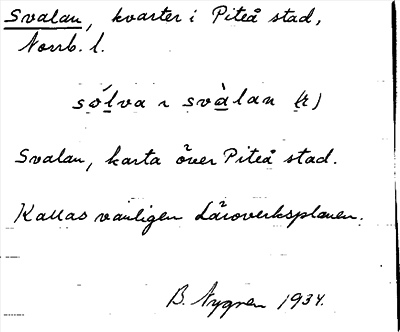 Svalan, kvarter i Piteå stad,
Norrb. l.
svàlan
Svalan, karta över Piteå stad.
Kallas vanligen Läroverksplanen.
B. Nygren 1934.